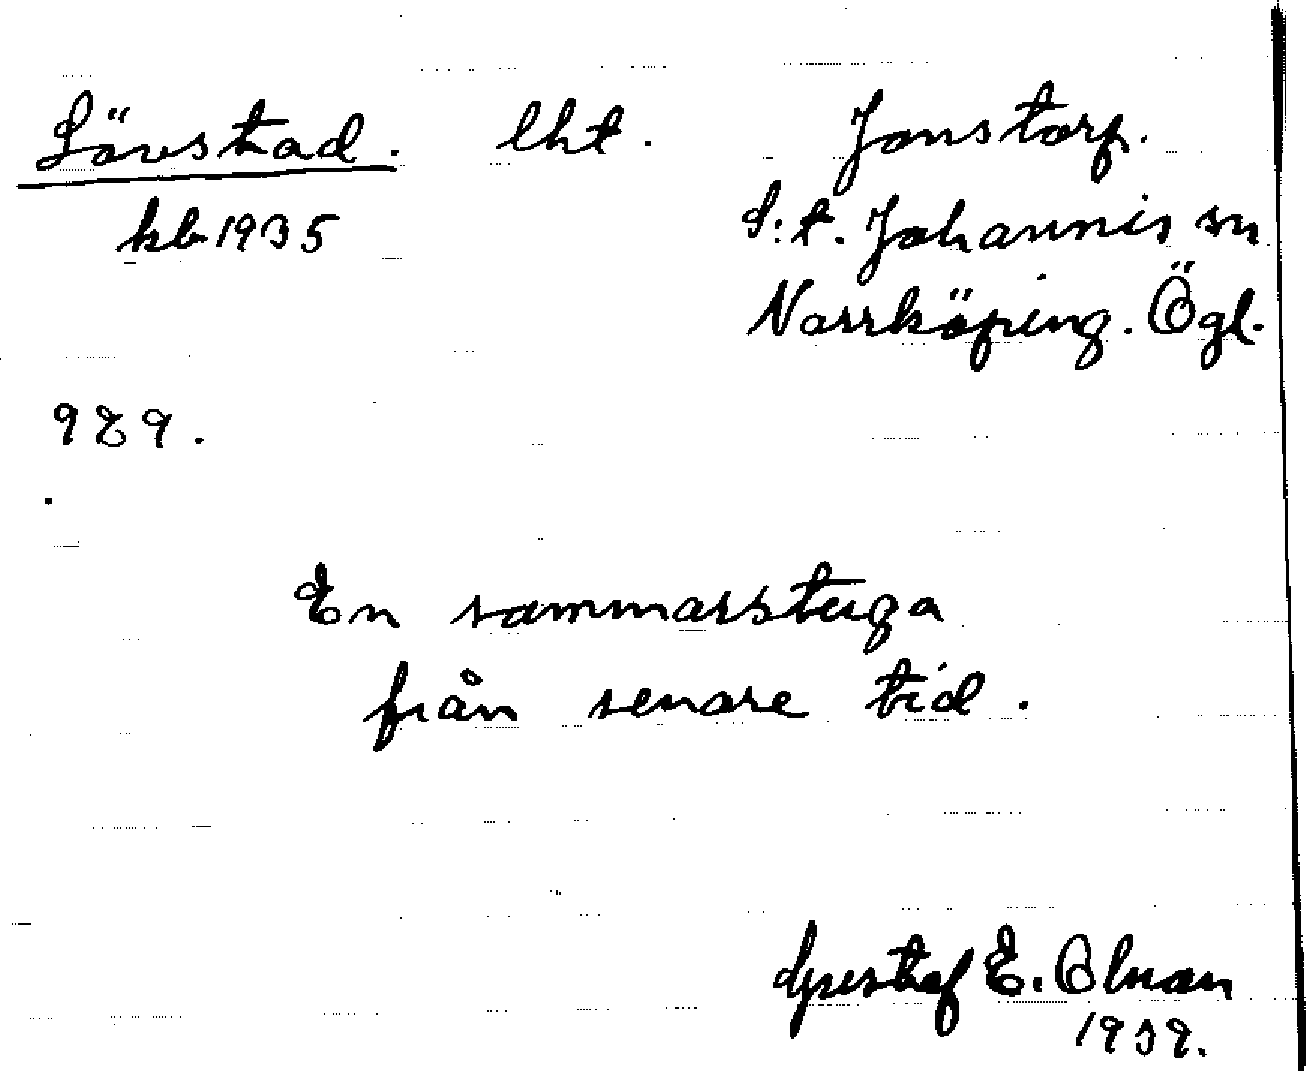 Lövstad. lht. Jonstorp.
kb 1935 S:t. Johannis sn
Norrköping. Ögl.
989.
En sommarstuga
från senare tid.
Gustaf E. Olnan
1939.